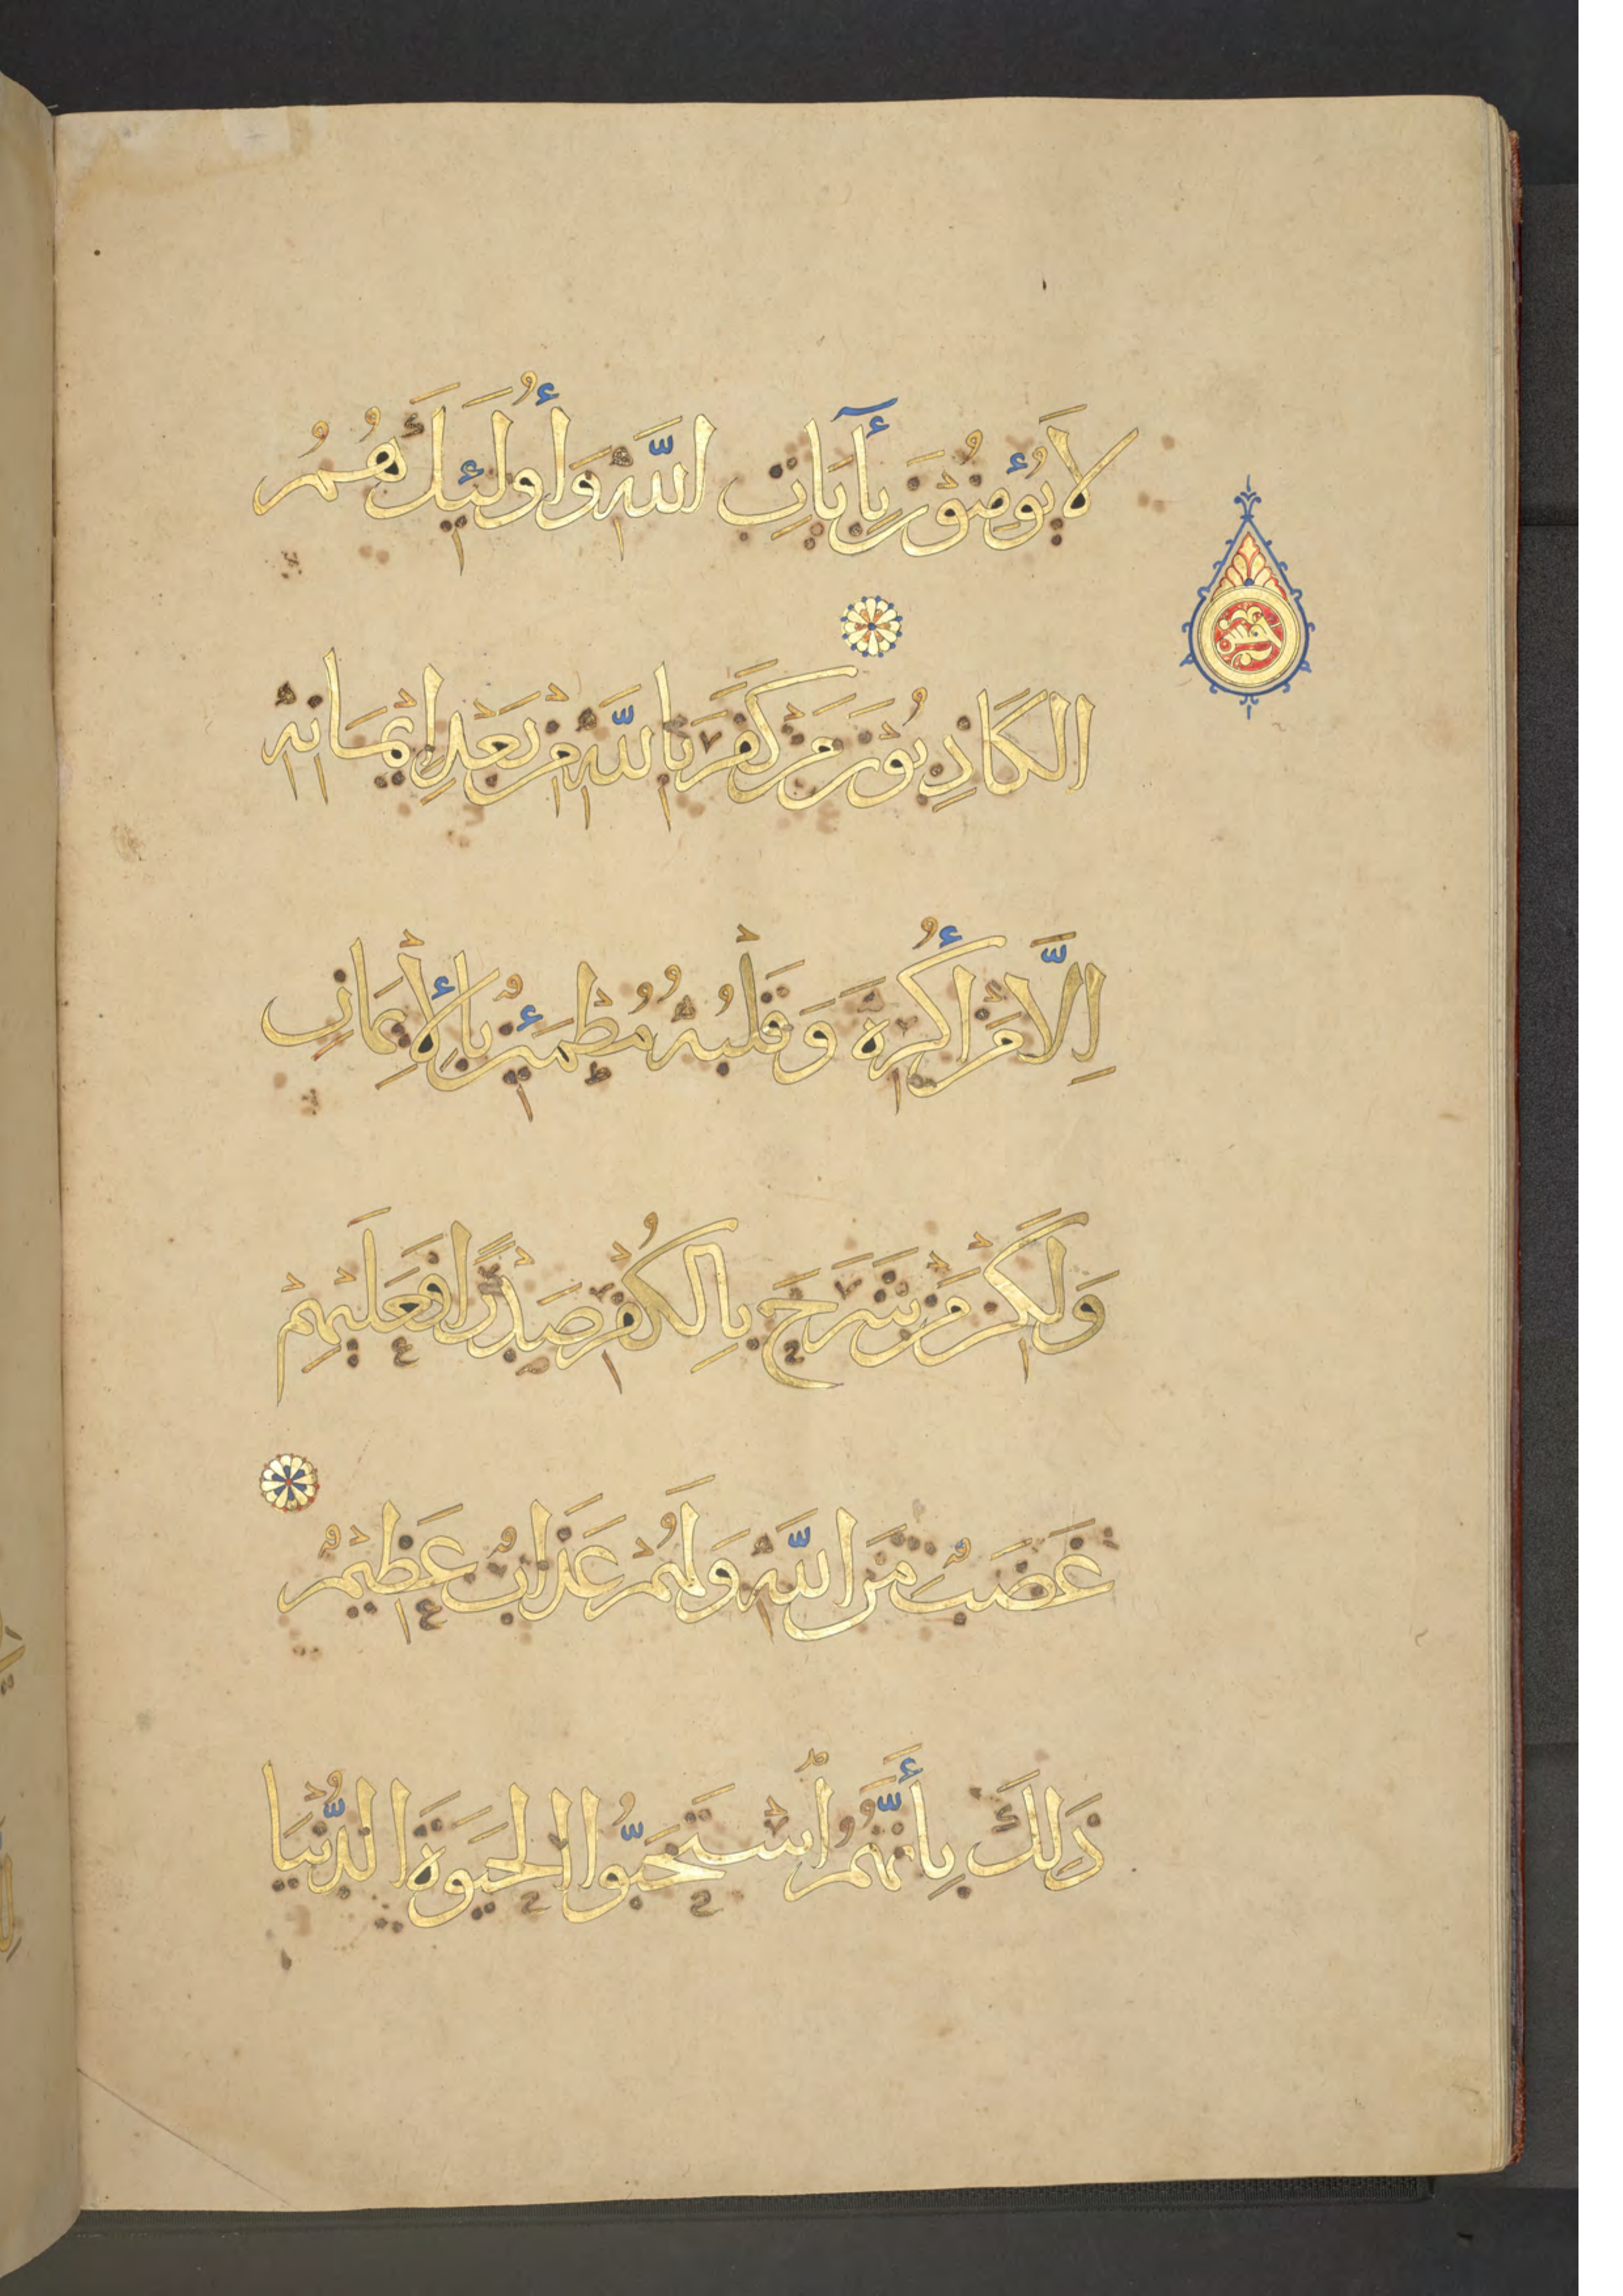 لَا يُؤْمِنُونَ بِأٓيَاتِ اللَّهِ وَأُولَئِكَ هُمُ
خمس
الكَاذِبُونَ مَنْ كَفَرَ بِاللَّهِ مِنْ بَعْدِ إِيْمَانِهِ
إِلَّا مَنْ أُكْرِهَ وَقَلْبُهُ مُطْمَئِنٌّ بِالْأِيمَانِ
وَلَكِنْ مَنْ شَرَحَ بِالكُفْرِ صَدْرًا فَعَلَيْهِمْ
غَضَبٌ مِّنَ اللَّهِ وَلَهُمْ عَذَابٌ عَظِيْمٌ
ذَلِكَ بِأَنَّهُمُ اسْتَحَبُّوا الْحَيَوةَ الدُّنْيَا